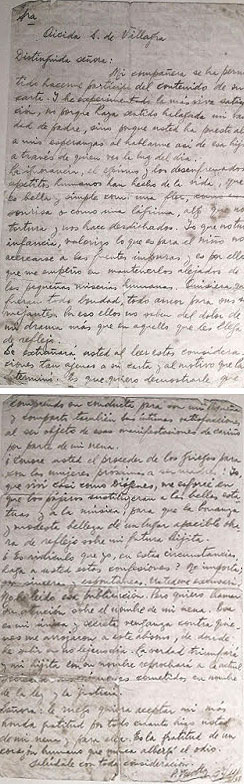 Sra
Alcida S. de Villagra
Distinguida señora:
Mi compañera se ha permi-
tido hacerme partícipe del contenido de su
carta. Y he experimentado la más viva satisfac-
ción, no porque haya usted halagado mi vani-
dad de padre, sino porque usted ha prestado
a mis esperanzas al hablarme así de esa hija
a través de quien veo la luz del día.
La ignorancia, el egoísmo y los desenfrenados
apetitos humanos han hecho de la vida, que
es bella, simple como una flor, como
sonrisa o como una lágrima, algo que nos
tortura y nos hace desdichados. Yo que no tuve
infancia, valorizo lo que es para el niño no
acercarse a las fuentes impuras, y es por ello
que me empeño en mantenerlos alejados de
las pequeñas miserias humanas. Quisiera que
fueran todo bondad, todo amor para sus se-
mejantes. Por eso ellos no saben del dolor de
mi drama más que en aquello que les llega
de reflejo.
Se extrañará usted al leer estas considera-
ciones tan ajenas a su carta y al motivo que la
determinó. Es que quiero demostrarle que
comprendo su conducta para con mi
y comparto también su íntima satisfacción
al ser objeto de esas manifestaciones de cariño
por parte de mi nena.
¿Conoce usted el proceder de los griegos para
con las mujeres próximas a ser madres? Yo
que viví casi como Diógenes, me esforcé en
que los pájaros sustituyeran a las bellas esta-
tuas y a la música; para que la bonanza
y modesta belleza de un lugar apacible obra-
ra de reflejo sobre mi futura hijita.
¿Es ridículo que yo, en estas circunstancias,
haga a usted estas confesiones? No importa;
son sinceras, espontáneas.
He leído esa publicación. Pero quiero llamar
su atención sobre el nombre de mi nena. Esa
es mi única y secreta venganza contra quie-
nes me arrojaron a este abismo, de donde
La verdad triunfará
y mi hijita con su nombre reprochará a la actual
cometidos en nombre
de la ley y la justicia.
Señora: le ruego quiera aceptar mi más
honda gratitud por todo cuanto hizo usted
de mi nena, para ella. Es la gratitud de un
corazón humano que nunca albergó el odio.
Salúdale con toda consideración.